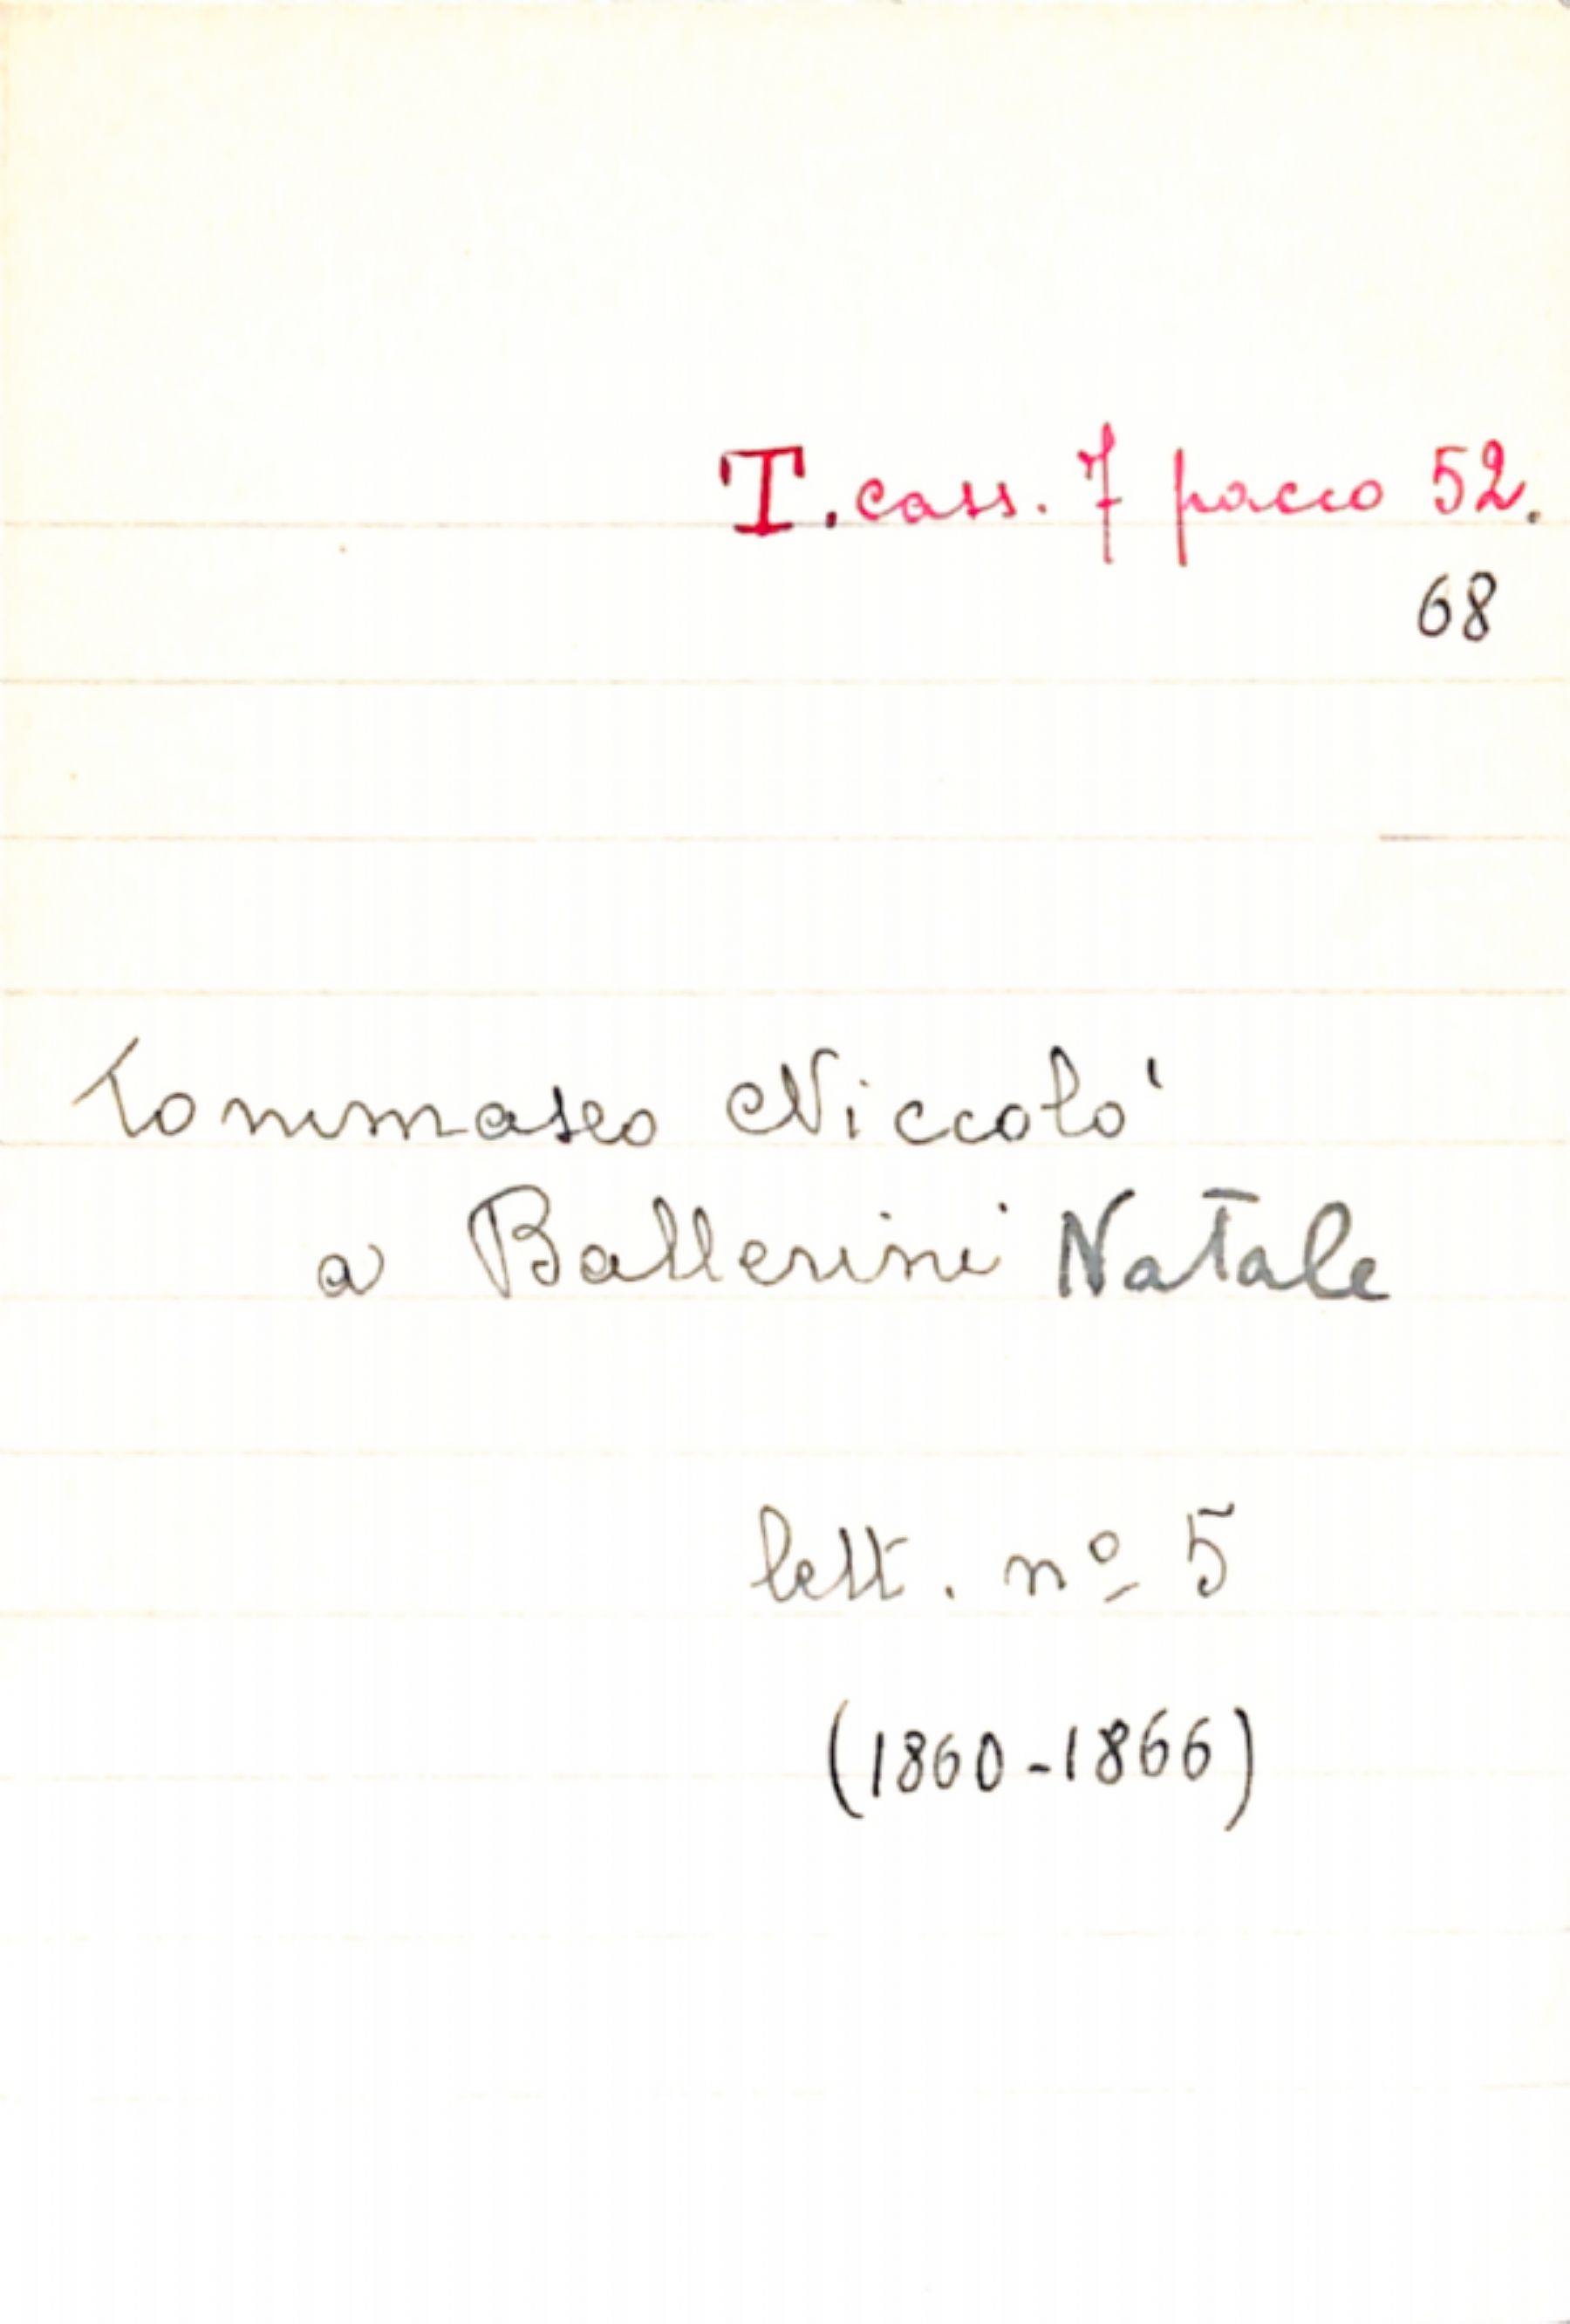 T. cass. 7 pacco 52.
68
Tommaseo Niccolo'
a Ballerini Natale
lett. nº 5
(1860-1866)